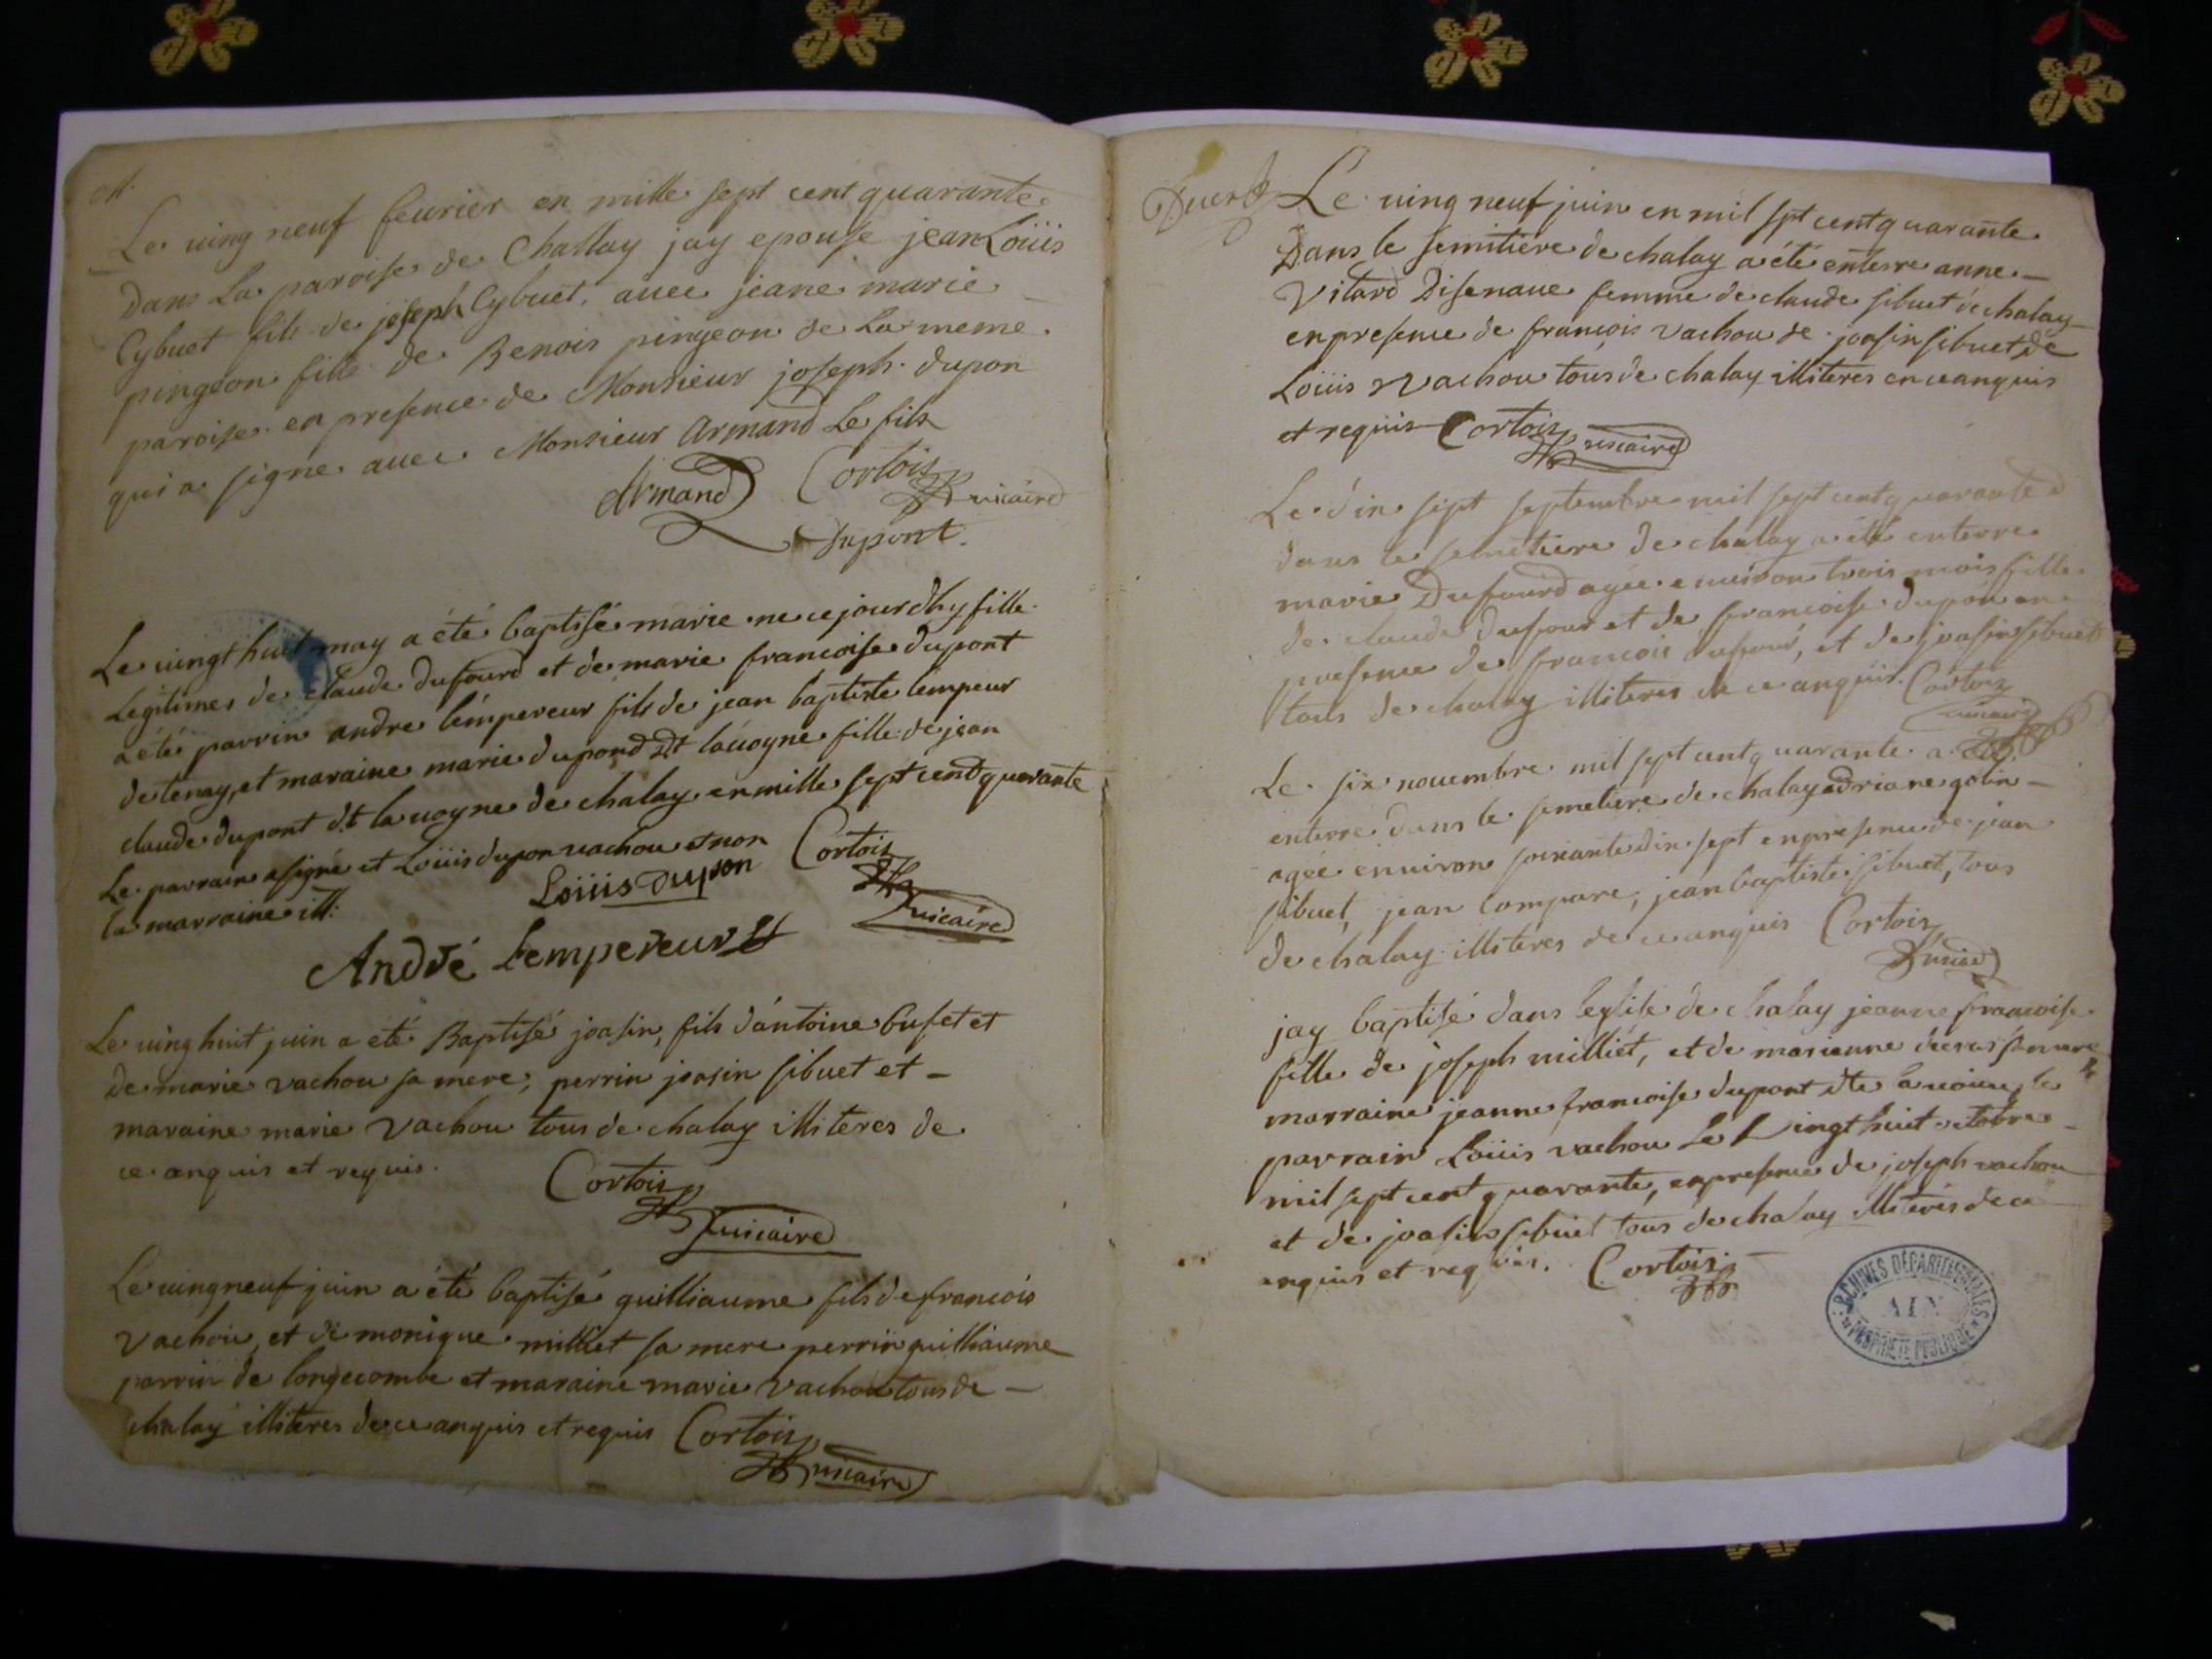 M.
Le uing neuf feurier en mille sept cent quarante
Dans La paroise de Challay jay epouse jean Loüis
Cybuet fils de joseph Cybuet, auec jeane marie
pingeon fille de Benois pingeon de La meme
paroise en presence de Monsieur joseph dupon
qui a signe auec Monsieur Armand Le fils
Armand Cortois
uicaire
Dupont.
Le uingt huit may a été baptisé marie ne ce jourdhy fille
Legitimes de claude dufourd et de marie francoise dupont
a été parrin andre lémpereur fils de jean baptiste lempeur
de tenay, et maraine marie dupond dt lauoyne fille de jean
claude dupont dt la uoyne de chalay en mille sept cent quarante
Le parrain a signé et Loüis dupon vachou et non
la marraine ill: Loüis Dupon Cortois
uicaire
André Lempereur
Le uing huit juin a été Baptisé joasin, fils dántoine bufet et
de marie vachou sa mere, perrin joasin sibuet et
maraine marie vachou tous de chalay illiteres de
ce anquis et requis. Cortois
uicaire
Le uing neuf juin a été baptisé guilliaume fils de francois
vachou, et de monique milliet sa mere perrin guilliaume
parrin de longecombe et maraine marie vachou tous de
chalay illiteres de ce anquis et requis Cortois
uicaire
Le uing neuf juin en mil spt cent quarante
Dans le semitiere de chalay a été enterre anne
Vitard Disenaue femme de claude sibuet de chalay
en presence de francois vachou de joasin sibuet de
Loüis vachou tous de chalay illiteres en ce anquis
et requis Cortois uicaire
Le dix sept septembre mil sept cent quarante
dans le semetiere de chalay a été enterre
marie Dufourd agée enuiron trois mois fille
de claude dufour et de francoise dupon en
presence de francois dufour, et de joasin sibuet
tous de chalay illiteres de ce anquis. Cortois
uicaire
Le six nouembre mil sept cent quarante a été
enterre dans le semetiere de chalay adriane golin
agée enuiron soixante dix sept en presence de jean
sibuet, jean compare, jean baptiste sibuet, tous
de chalay illiteres de ce anquis Cortois
uicaire
jay baptisé dans leglise de chalay jeanne francoise
fille de joseph milliét, et de marianne sa mere
marraine jeanne francoise dupont dte lauoine le
parrain Loüis vachou Le Vingt huit octobre
mil sept cent quarante, en presence de joseph vachou
et de joasin sibuet tous de chalay illiteres de ce
anquis et requis. Cortois
ARCHIVES DÉPARTEMENTALES
AIN
PROPRIÉTÉ PUBLIQUE